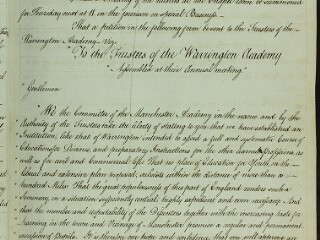 for Thursday next at 11 in the forenoon on special Business.
That a petition in the following form be sent to the Trustees of the
Warrington Academy. Viz.
"To the Trustees of the Warrington Academy
"Assembled at their Annual meeting
"Gentlemen
"We the Committee of the Manchester Academy in the name and by the
Authority of the Trustees take the Liberty of stating to you that we have established an
Institution, like that of Warrington intended to afford a full and systematic Course of
Education for Divines, and preparatory Instructions for the other learned Professions as
well as for civil and Commercial life. That no place of Education for Youth, on the
liberal and extensive plan proposed, exists within the distance of more than a
hundred Miles. That the great populousness of this part of England renders such a
Seminary, in a situation sufficiently central, highly expedient and even necessary. And
that the number and respectability of the Dissenters together with the increasing taste for
Learning in the town and Vicinage of Manchester promise a regular and permanent